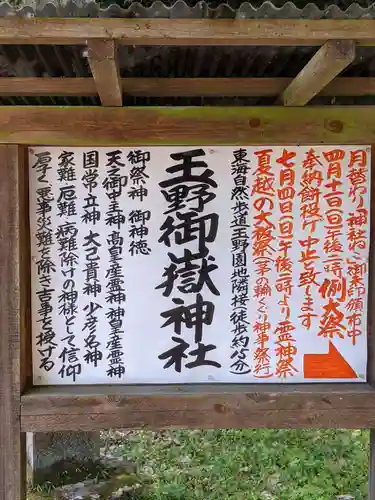 月替わり「神社」ご御朱印頒布中
四月十日(日)午後二時例大祭
奉納餅投げ中止と致します
七月四日(日)午後二時より霊神祭
夏越の大祓祭(茅の輪くぐり神事祭行)
東海自然歩道玉野園地隣接(徒歩約15分)
玉野御嶽神社
御祭神 御神徳
天之御中主神 高皇産霊神 神皇産霊神
国常立神 大己貴神 少彦名神
家難、厄難、病難除けの神様として信仰
され一家事災難を除き吉事を授ける